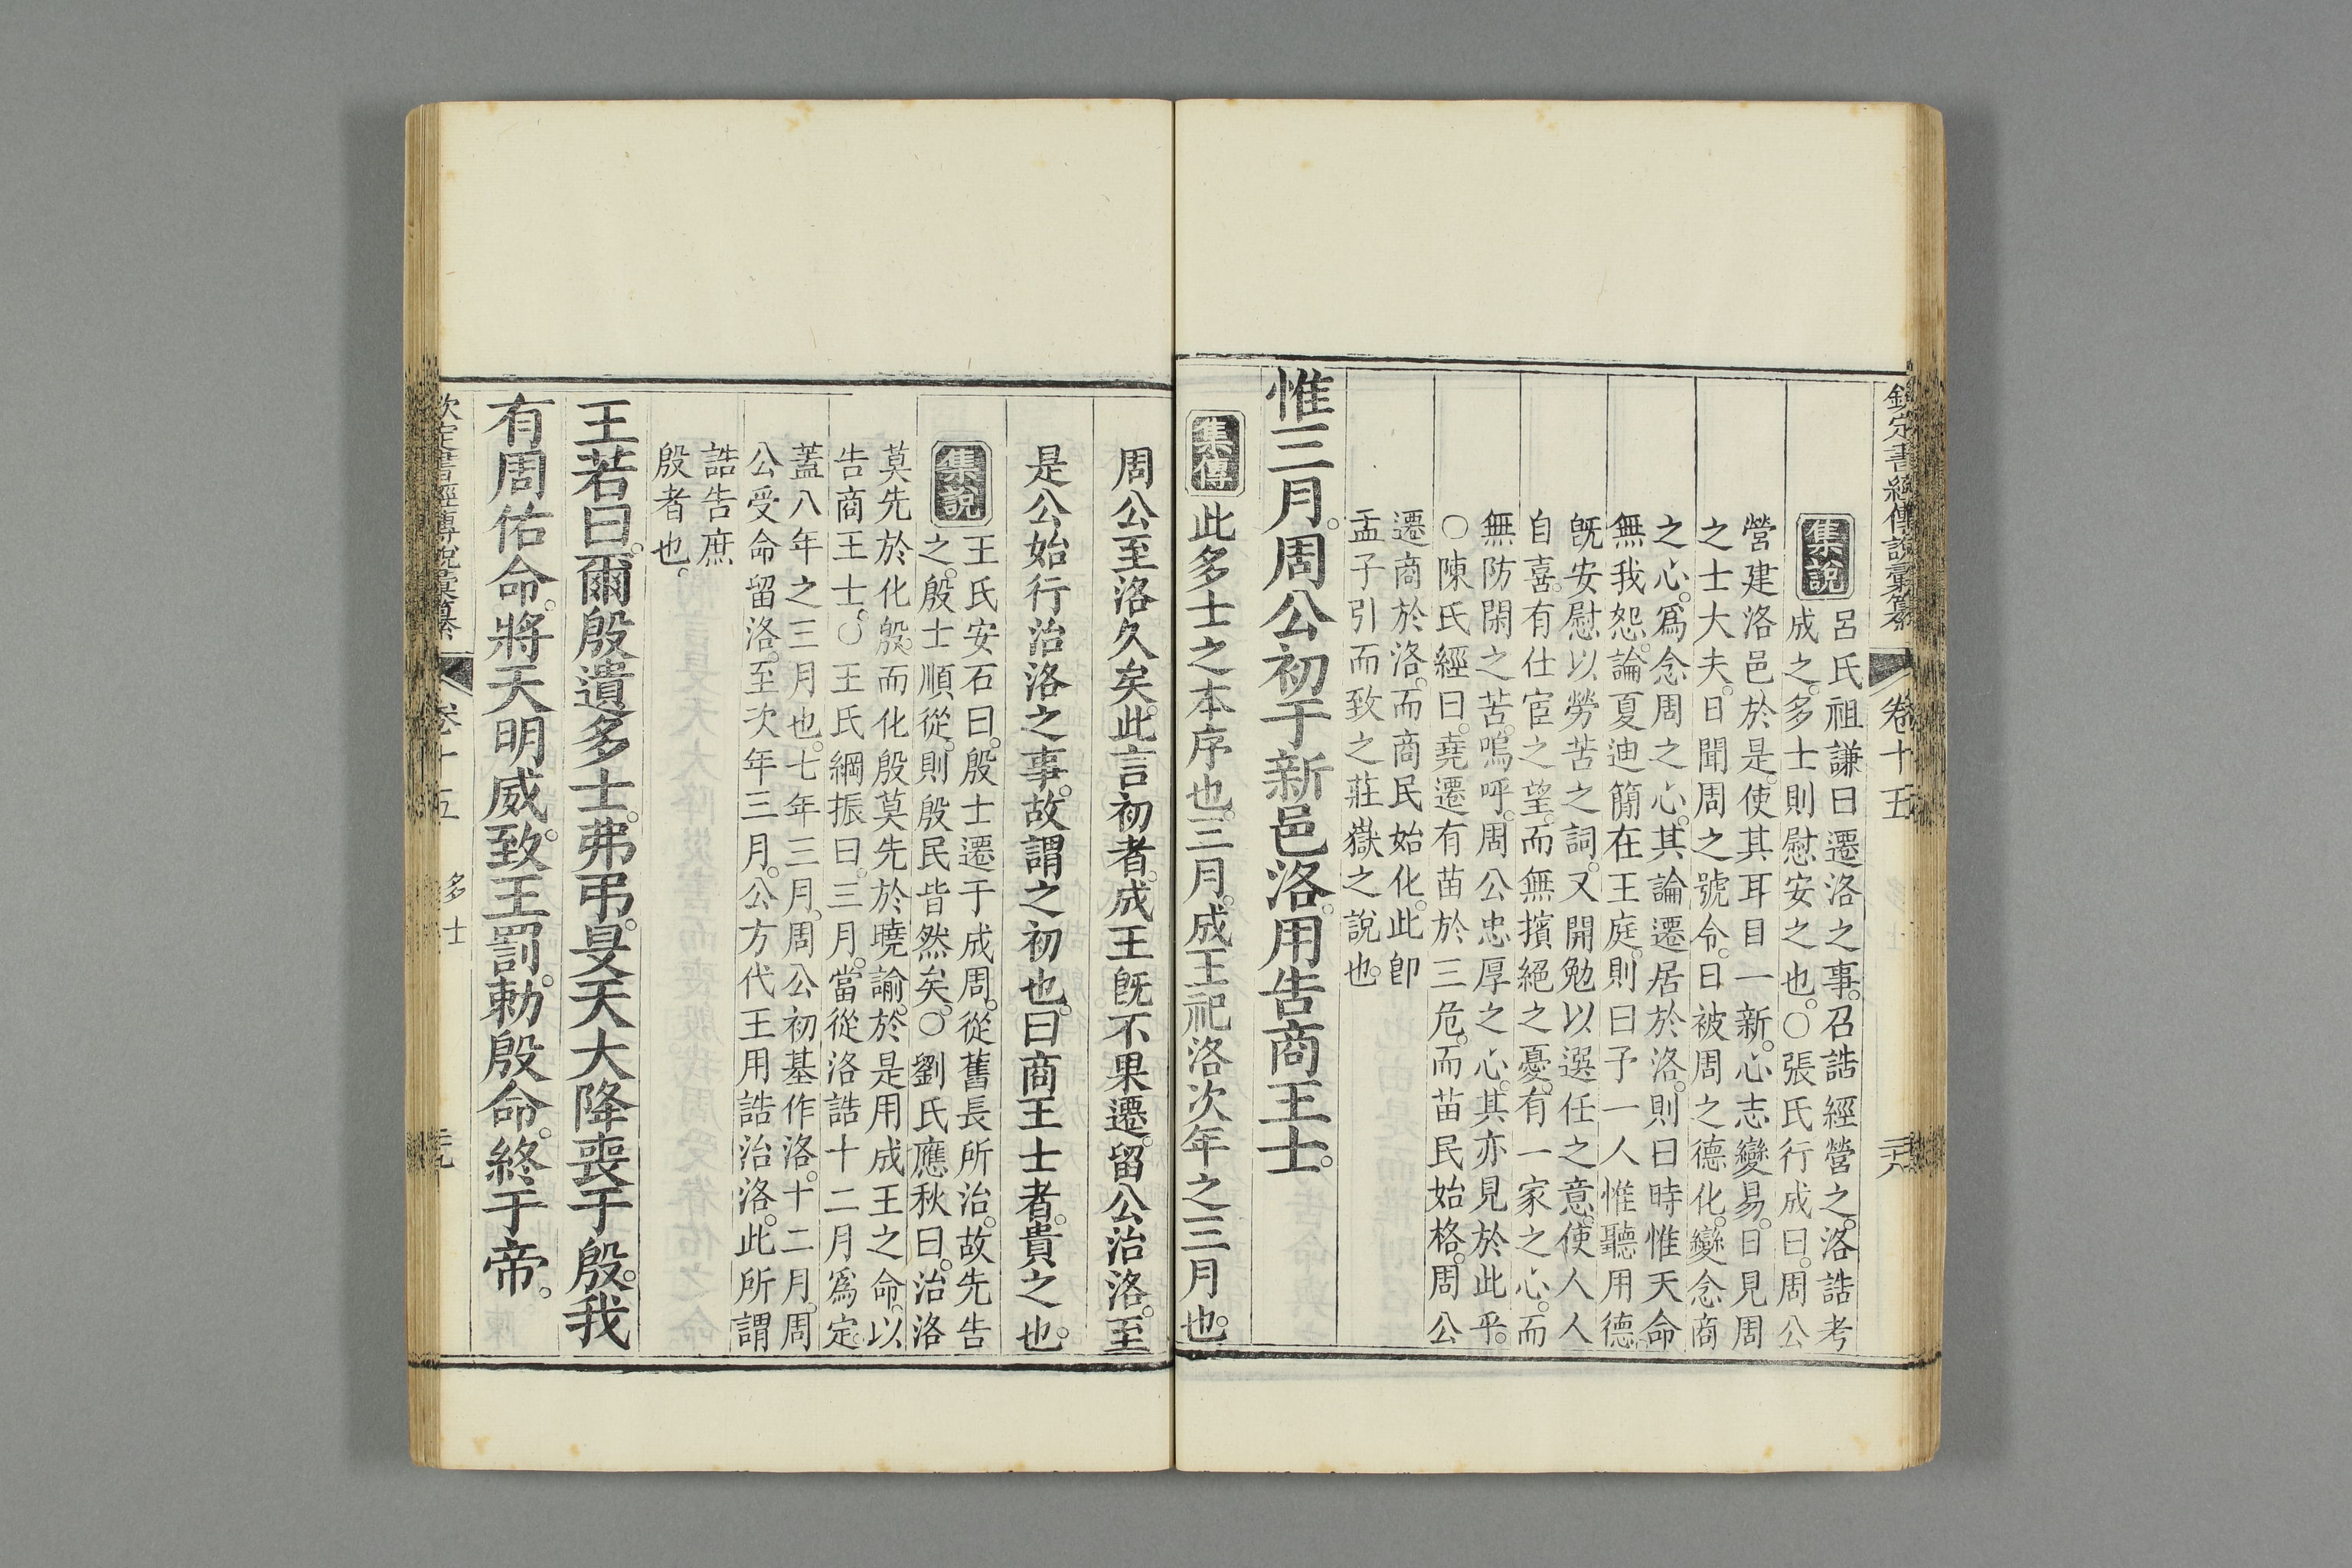 欽定書經傳說彙纂 卷十五 二十八
集說
呂氏祖謙曰遷洛之事。召誥經營之。洛誥考
成之。多士則慰安之也。○張氏行成曰。周公
營建洛邑於是。使其耳目一新。心志變易。日見周
之士大夫。日聞周之號令。日被周之德化。變念商
之心。爲念周之心。其論遷居於洛。則曰時惟天命
無我怨。論夏迪簡在王庭。則曰予一人惟聽用德。
旣安慰以勞苦之詞。又開勉以選任之意。使人人
自喜。有仕宦之望。而無擯絕之憂。有一家之心。而
無防閑之苦。嗚呼。周公忠厚之心。其亦見於此乎。
○陳氏經曰。堯遷有苗於三危。而苗民始格。周公
遷商於洛。而商民始化。此卽
孟子引而致之莊嶽之說也。
惟三月。周公初于新邑洛。用告商王士。
集傳
此多士之本序也。三月。成王祀洛次年之三月也。
周公至洛久矣。此言初者。成王旣不果遷。留公治洛。至
是公始行治洛之事。故謂之初也。曰商王士者。貴之也。
集說
王氏安石曰。殷士遷于成周。從舊長所治。故先告
之。殷士順從。則殷民皆然矣。○劉氏應秋曰。治洛
莫先於化殷。而化殷莫先於曉諭。於是用成王之命。以
告商王士。○王氏綱振曰。三月。當從洛誥十二月爲定。
蓋八年之三月也。七年三月。周公初基作洛。十二月。周
公受命留洛。至次年三月。公方代王用誥治洛。此所謂
誥告庶
殷者也。
王若曰。爾殷遺多士。弗弔。旻天大降喪于殷。我
有周佑命。將天明威。致王罰。勅殷命。終于帝。
欽定書經傳說彙纂 卷十五 多士 二十九